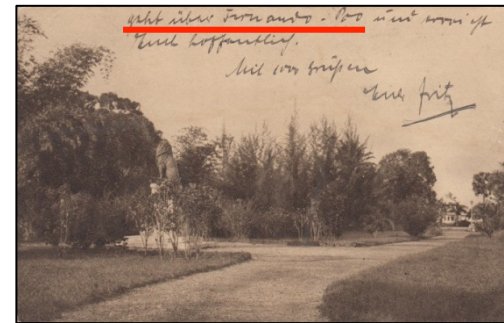 geht über Fernando-Poo und erreicht
Euch hoffentlich.
Mit 1000 Grüßen
Euer Fritz